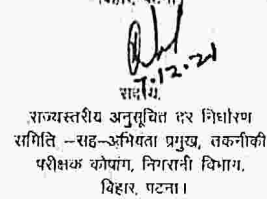 बिहार, पटना।
7.12.21
सदस्य,
राज्यस्तरीय अनुसूचित दर निर्धारण
समिति –सह–अभियंता प्रमुख, तकनीकी
परीक्षक कोषांग, निगरानी विभाग,
बिहार, पटना।